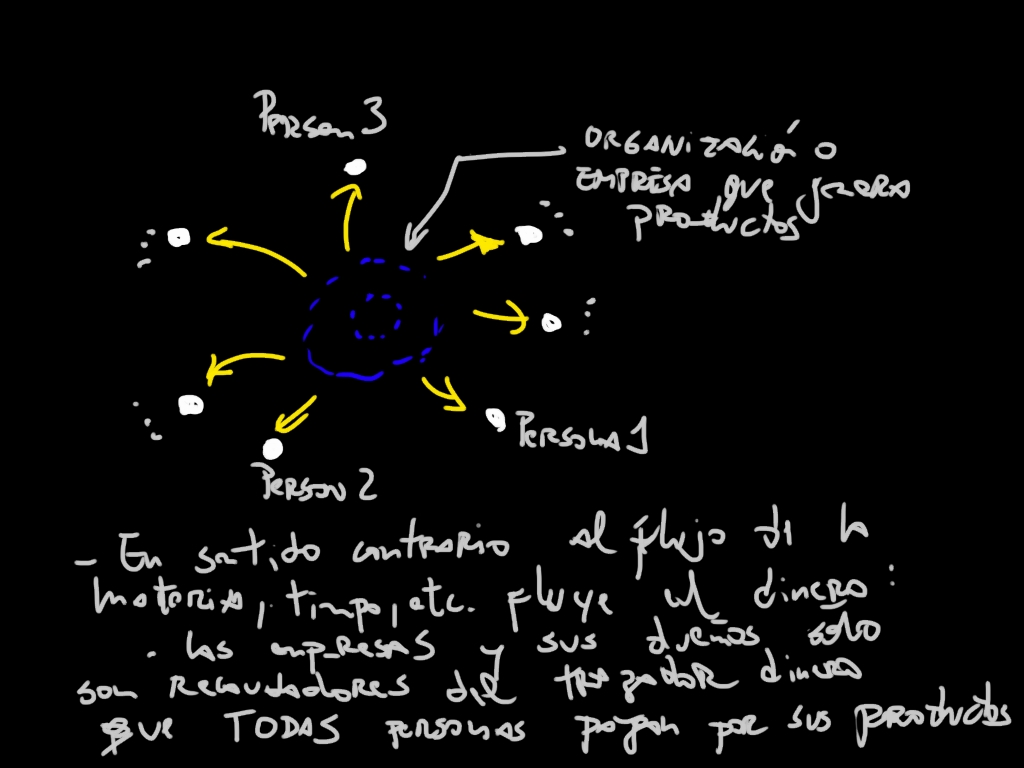 Person 3
ORGANIZACIÓN O
EMPRESA que genera
PRODUCTOS
Persona 1
Person 2
- En sentido contrario al flujo de la
materia, timpo, etc. fluye el dinero:
. Las empresas y sus dueños sólo
son RECAUDADORES del trazador dinero
que TODAS personas pagan por sus productos